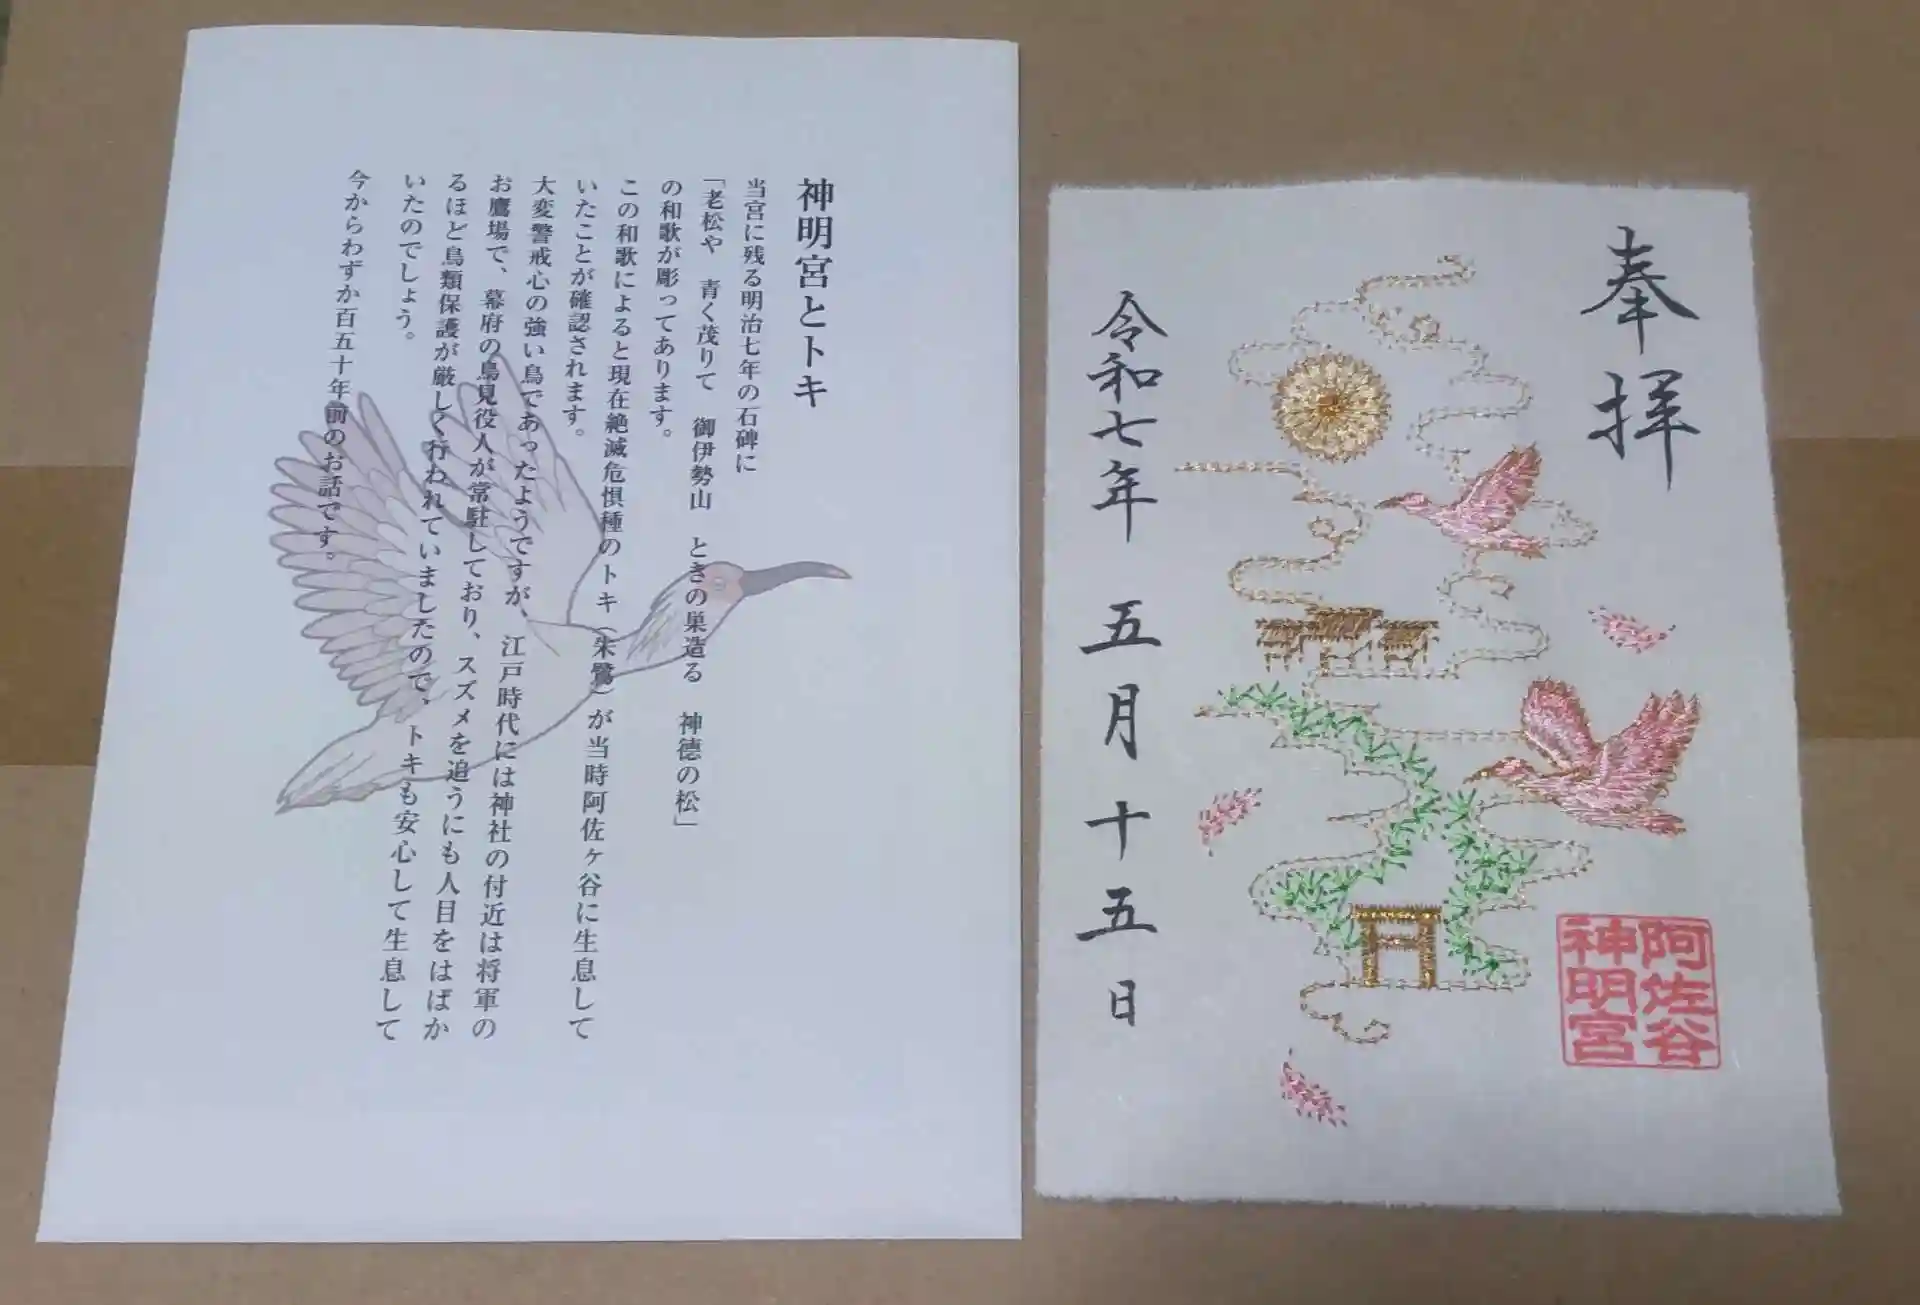 神明宮とトキ
当宮に残る明治七年の石碑に
「老松や　青く茂りて　御伊勢山　ときの巣造る　神徳の松」
の和歌が彫ってあります。
この和歌によると現在絶滅危惧種のトキ（朱鷺）が当時阿佐ヶ谷に生息して
いたことが確認されます。
大変警戒心の強い鳥であったようですが、江戸時代には神社の付近は将軍の
お鷹場で、幕府の鳥見役人が常駐しており、スズメを追うにも人目をはばか
るほど鳥類保護が厳しく行われていましたので、トキも安心して生息して
いたのでしょう。
今からわずか百五十年前のお話です。
奉拝
令和七年　五月十五日
阿佐谷
神明宮